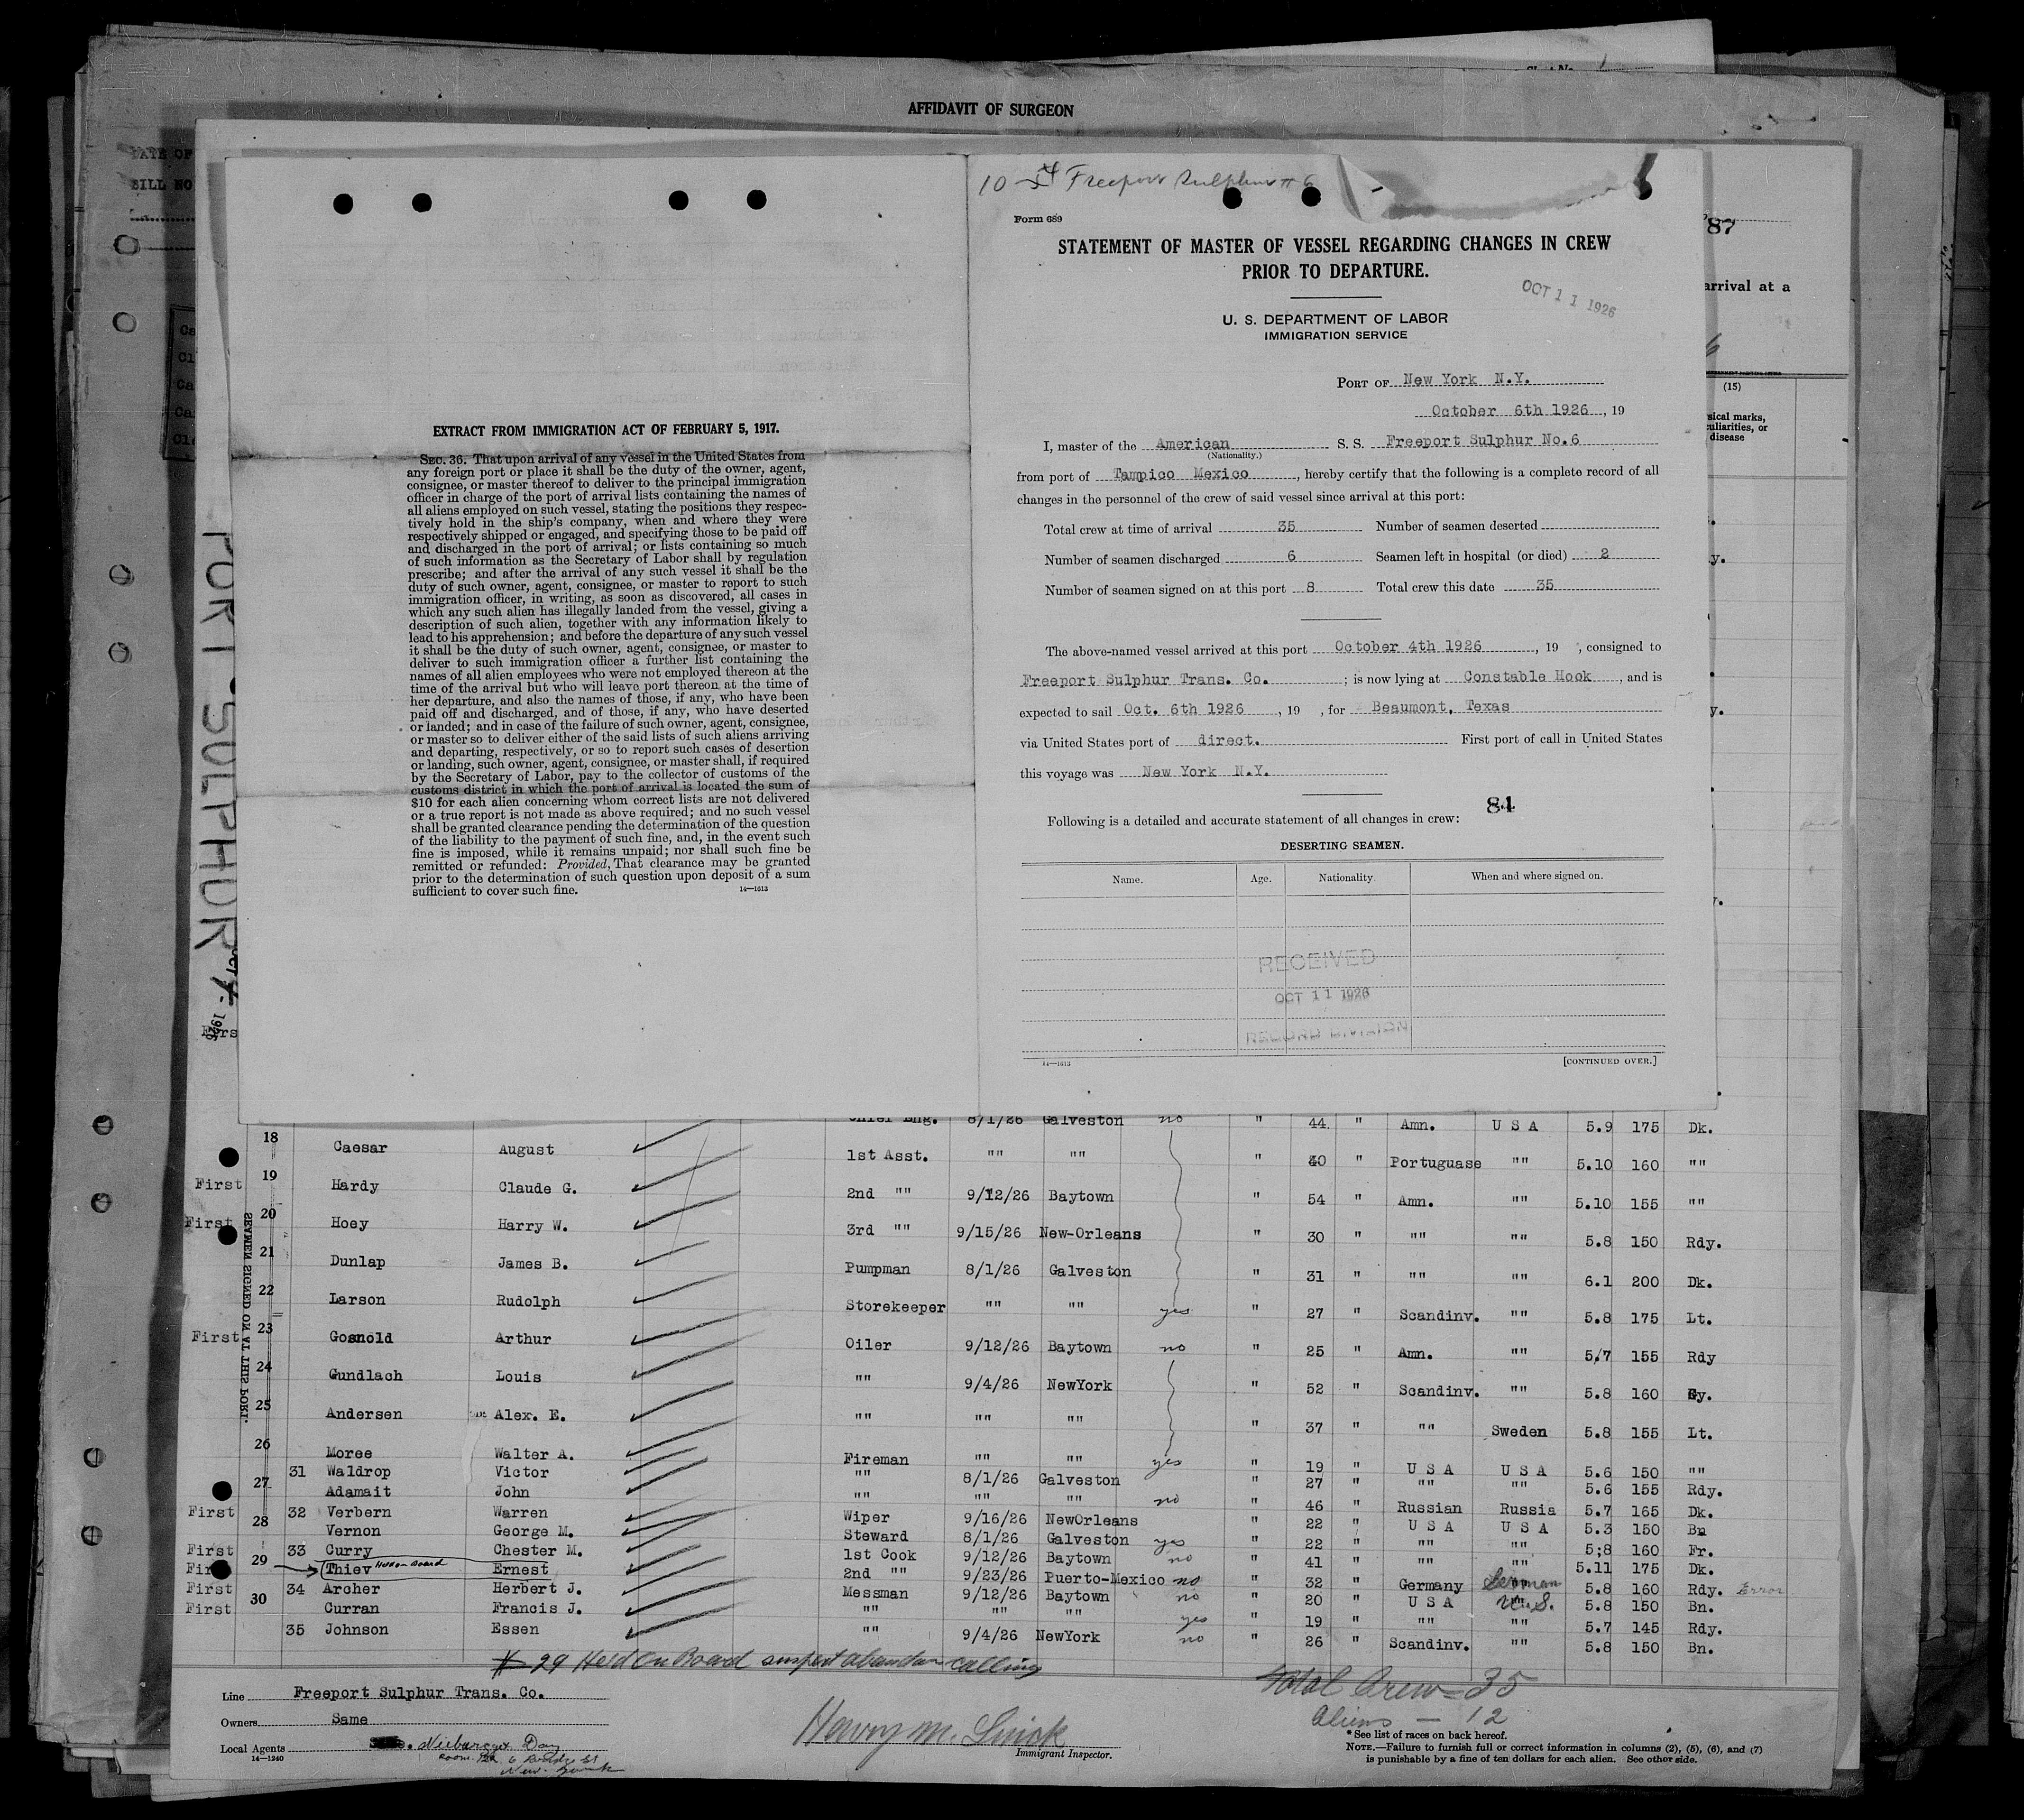 AFFIDAVIT OF SURGEON
DATE OF
BILL NO
PORT SULPHUR
EXTRACT FROM IMMIGRATION ACT OF FEBRUARY 5, 1917.
SEC. 36. That upon arrival of any vessel in the United States from
any foreign port or place it shall be the duty of the owner, agent,
consignee, or master thereof to deliver to the principal immigration
officer in charge of the port of arrival lists containing the names of
all aliens employed on such vessel, stating the positions they respec-
tively hold in the ship's company, when and where they were
respectively shipped or engaged, and specifying those to be paid off
and discharged in the port of arrival; or lists containing so much
of such information as the Secretary of Labor shall by regulation
prescribe; and after the arrival of any such vessel it shall be the
duty of such owner, agent, consignee, or master to report to such
immigration officer, in writing, as soon as discovered, all cases in
which any such alien has illegally landed from the vessel, giving a
description of such alien, together with any information likely to
lead to his apprehension; and before the departure of any such vessel
it shall be the duty of such owner, agent, consignee, or master to
deliver to such immigration officer a further list containing the
names of all alien employees who were not employed thereon at the
time of the arrival but who will leave port thereon at the time of
her departure, and also the names of those, if any, who have been
paid off and discharged, and of those, if any, who have deserted
or landed; and in case of the failure of such owner, agent, consignee,
or master so to deliver either of the said lists of such aliens arriving
and departing, respectively, or so to report such cases of desertion
or landing, such owner, agent, consignee, or master shall, if required
by the Secretary of Labor, pay to the collector of customs of the
customs district in which the port of arrival is located the sum of
$10 for each alien concerning whom correct lists are not delivered
or a true report is not made as above required; and no such vessel
shall be granted clearance pending the determination of the question
of the liability to the payment of such fine, and, in the event such
fine is imposed, while it remains unpaid; nor shall such fine be
remitted or refunded: Provided, That clearance may be granted
prior to the determination of such question upon deposit of a sum
sufficient to cover such fine. 14—1613
Freeport Sulphur # 6
Form 689
STATEMENT OF MASTER OF VESSEL REGARDING CHANGES IN CREW
PRIOR TO DEPARTURE.
OCT 11 1926
U. S. DEPARTMENT OF LABOR
IMMIGRATION SERVICE
PORT OF New York N.Y.
October 6th 1926, 19
I, master of the American S. S. Freeport Sulphur No.6
(Nationality.)
from port of Tampico Mexico, hereby certify that the following is a complete record of all
changes in the personnel of the crew of said vessel since arrival at this port:
Total crew at time of arrival 35 Number of seamen deserted
Number of seamen discharged 6 Seamen left in hospital (or died) 2
Number of seamen signed on at this port 8 Total crew this date 35
The above-named vessel arrived at this port October 4th 1926, 19 , consigned to
Freeport Sulphur Trans. Co. ; is now lying at Constable Hook, and is
expected to sail Oct. 6th 1926, 19 , for Beaumont, Texas
via United States port of direct. First port of call in United States
this voyage was New York N.Y.
84
Following is a detailed and accurate statement of all changes in crew:
DESERTING SEAMEN.
Name. Age. Nationality. When and where signed on.
RECEIVED
OCT 11 1926
RECORD DIVISION
14—1613 [CONTINUED OVER.]
87
arrival at a
(15)
sical marks,
culiarities, or
disease
SEAMEN SIGNED ON AT THIS PORT.
Chief Eng. 8/1/26 Galveston no " 44 " Amn. U S A 5.9 175 Dk.
18 Caesar August 1st Asst. "" "" " 40 " Portuguase "" 5.10 160 ""
First 19 Hardy Claude G. 2nd "" 9/12/26 Baytown " 54 " Amn. "" 5.10 155 ""
First 20 Hoey Harry W. 3rd "" 9/15/26 New-Orleans " 30 " "" "" 5.8 150 Rdy.
21 Dunlap James B. Pumpman 8/1/26 Galveston " 31 " "" "" 6.1 200 Dk.
22 Larson Rudolph Storekeeper "" "" yes " 27 " Scandinv. "" 5.8 175 Lt.
First 23 Gosnold Arthur Oiler 9/12/26 Baytown no " 25 " Amn. "" 5.7 155 Rdy
24 Gundlach Louis "" 9/4/26 NewYork " 52 " Scandinv. "" 5.8 160 Gy.
25 Andersen Alex. E. "" "" "" " 37 " "" Sweden 5.8 155 Lt.
26 Moree Walter A. Fireman "" "" yes " 19 " U S A U S A 5.6 150 ""
31 Waldrop Victor "" 8/1/26 Galveston " 27 " "" "" 5.6 155 Rdy.
27 Adamait John "" "" "" no " 46 " Russian Russia 5.7 165 Dk.
First 32 Verbern Warren Wiper 9/16/26 NewOrleans " 22 " U S A U S A 5.3 150 Bn
28 Vernon George M. Steward 8/1/26 Galveston yes " 22 " "" "" 5;8 160 Fr.
First 33 Curry Chester M. 1st Cook 9/12/26 Baytown no " 41 " "" "" 5.11 175 Dk.
First 29 Thiev Held on Board Ernest 2nd "" 9/23/26 Puerto-Mexico no " 32 " Germany German 5.8 160 Rdy. Error
First 34 Archer Herbert J. Messman 9/12/26 Baytown no " 20 " U S A U.S. 5.8 150 Bn.
First 30 Curran Francis J. "" "" "" yes " 19 " "" "" 5.7 145 Rdy.
35 Johnson Essen "" 9/4/26 NewYork no " 26 " Scandinv. "" 5.8 150 Bn.
29 Held on Board suspect abandon calling
Total Crew = 35
Aliens — 12
Line Freeport Sulphur Trans. Co.
Owners Same
Local Agents
14—1240
New York
Immigrant Inspector.
*See list of races on back hereof.
NOTE.—Failure to furnish full or correct information in columns (2), (5), (6), and (7)
is punishable by a fine of ten dollars for each alien. See other side.